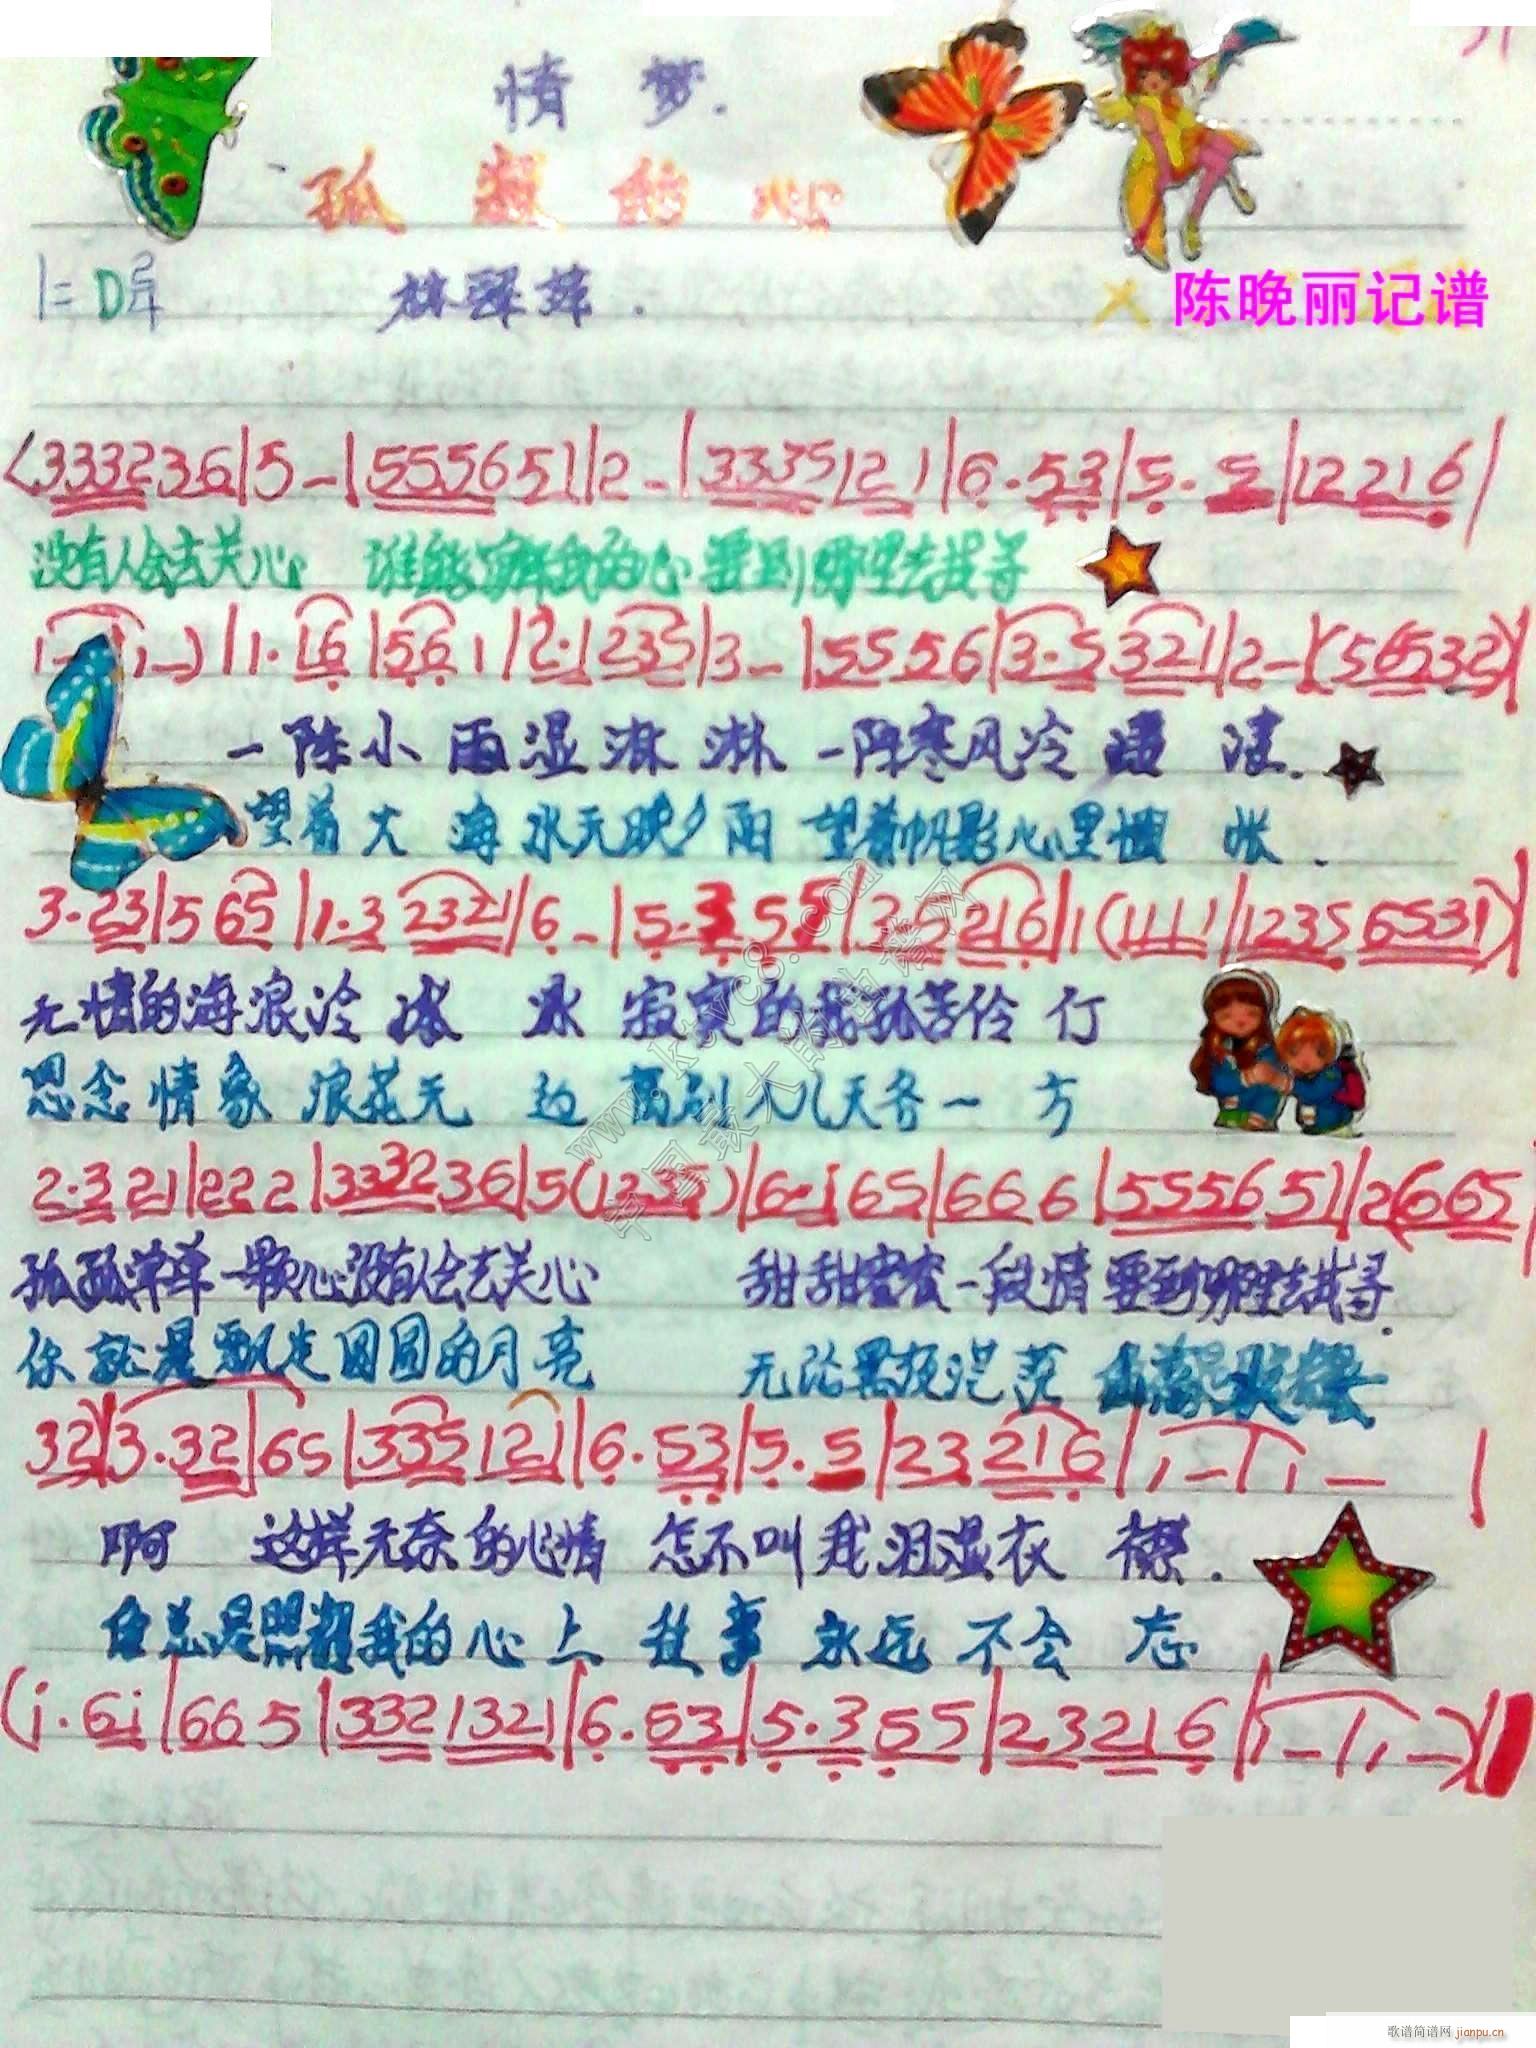 情 梦.
孤 寂 的 心
1=D
陈晚丽记谱
(333236|5-|555651|2-|3335121|6·53|5·5|12216|
没有人会去关心 谁能了解我的心 要到哪里去找寻
1-|1-)|1·16|561|2·1235|3-|5556|3·5321|2-(56532)|
一陈小雨湿淋淋 一陈寒风冷 凄.
望着大海水无映夕阳 望着帆影心里惆怅.
3·23|565|1·32321|6-|5·355|35216|1(1111|12356531)|
无情的海浪冷冰 冰 寂寞的我孤苦伶仃
思念情象浪花无边 离别人儿天各一方
2·321|222|333236|5(1235)|6·165|666|555651|2(6665
孤孤单单一颗心没有人会去关心 甜甜蜜蜜一段情要到哪里去找寻.
你就是飘走圆圆的月亮 无论黑夜茫茫
32)|3·32|65|335121|6·53|5·5|23216|1-|1-|
啊 这样无奈的心情 怎不叫我泪湿衣襟.
总是照耀我的心上 往事永远不会忘
(i·6i|665|3321321|6·53|5·355|23216|1-|1-)|
www.ktvc8.com
中国最大的曲谱网
歌谱简谱网 jianpu.cn